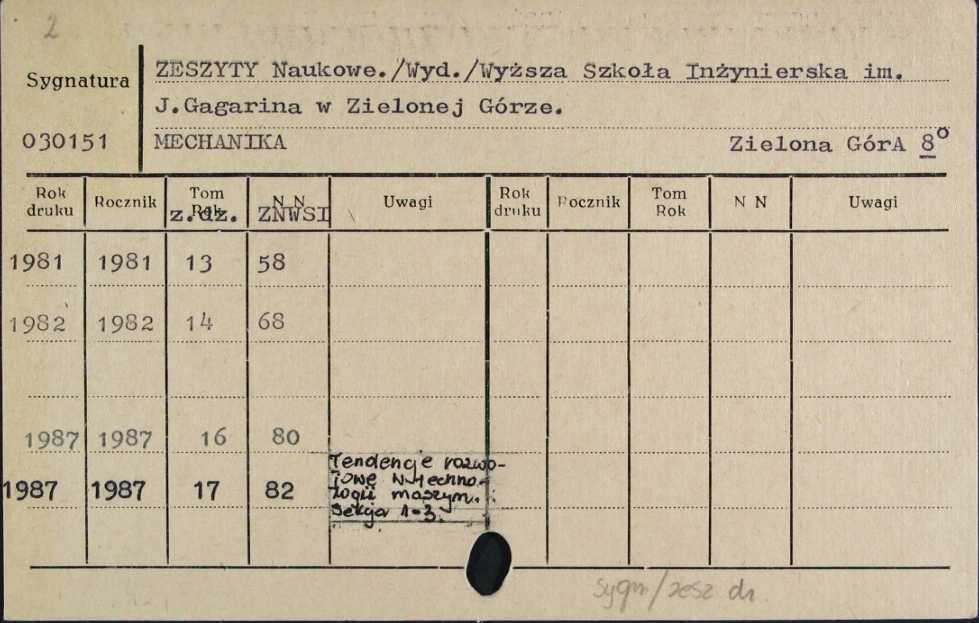 2
Sygnatura
ZESZYTY Naukowe./Wyd./Wyższa Szkoła Inżynierska im.
J.Gagarina w Zielonej Górze.
030151 MECHANIKA Zielona GórA 8º
Rok druku Rocznik Tom Rok z.dz. N N ZNWSI Uwagi Rok druku Rocznik Tom Rok N N Uwagi
1981 1981 13 58
1982 1982 14 68
1987 1987 16 80
1987 1987 17 82
Tendencje rozwo-
jowe w techno-
logii maszyn.
Sekcja 1-3.
sygn/zesz dr.